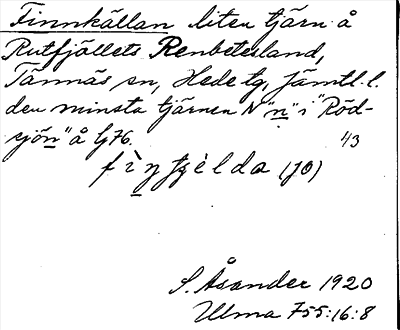 Finnkällan liten tjärn å
Rutfjällets Renbetesland,
Tännäs sn, Hede tg, Jämtl. l.
den minsta tjärnen N "n" i "Röd-
sjön" å Gj76. 43
(JO)
S. Åsander 1920
Ulma 755:16:8